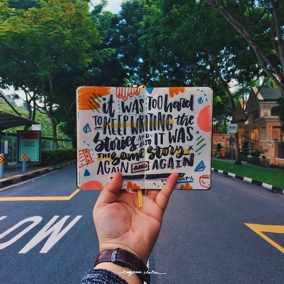 it WAS TOO hard
TO KEEP WRITING the
stories AND IT WAS
THE same story
AGAIN AND AGAIN
LOW